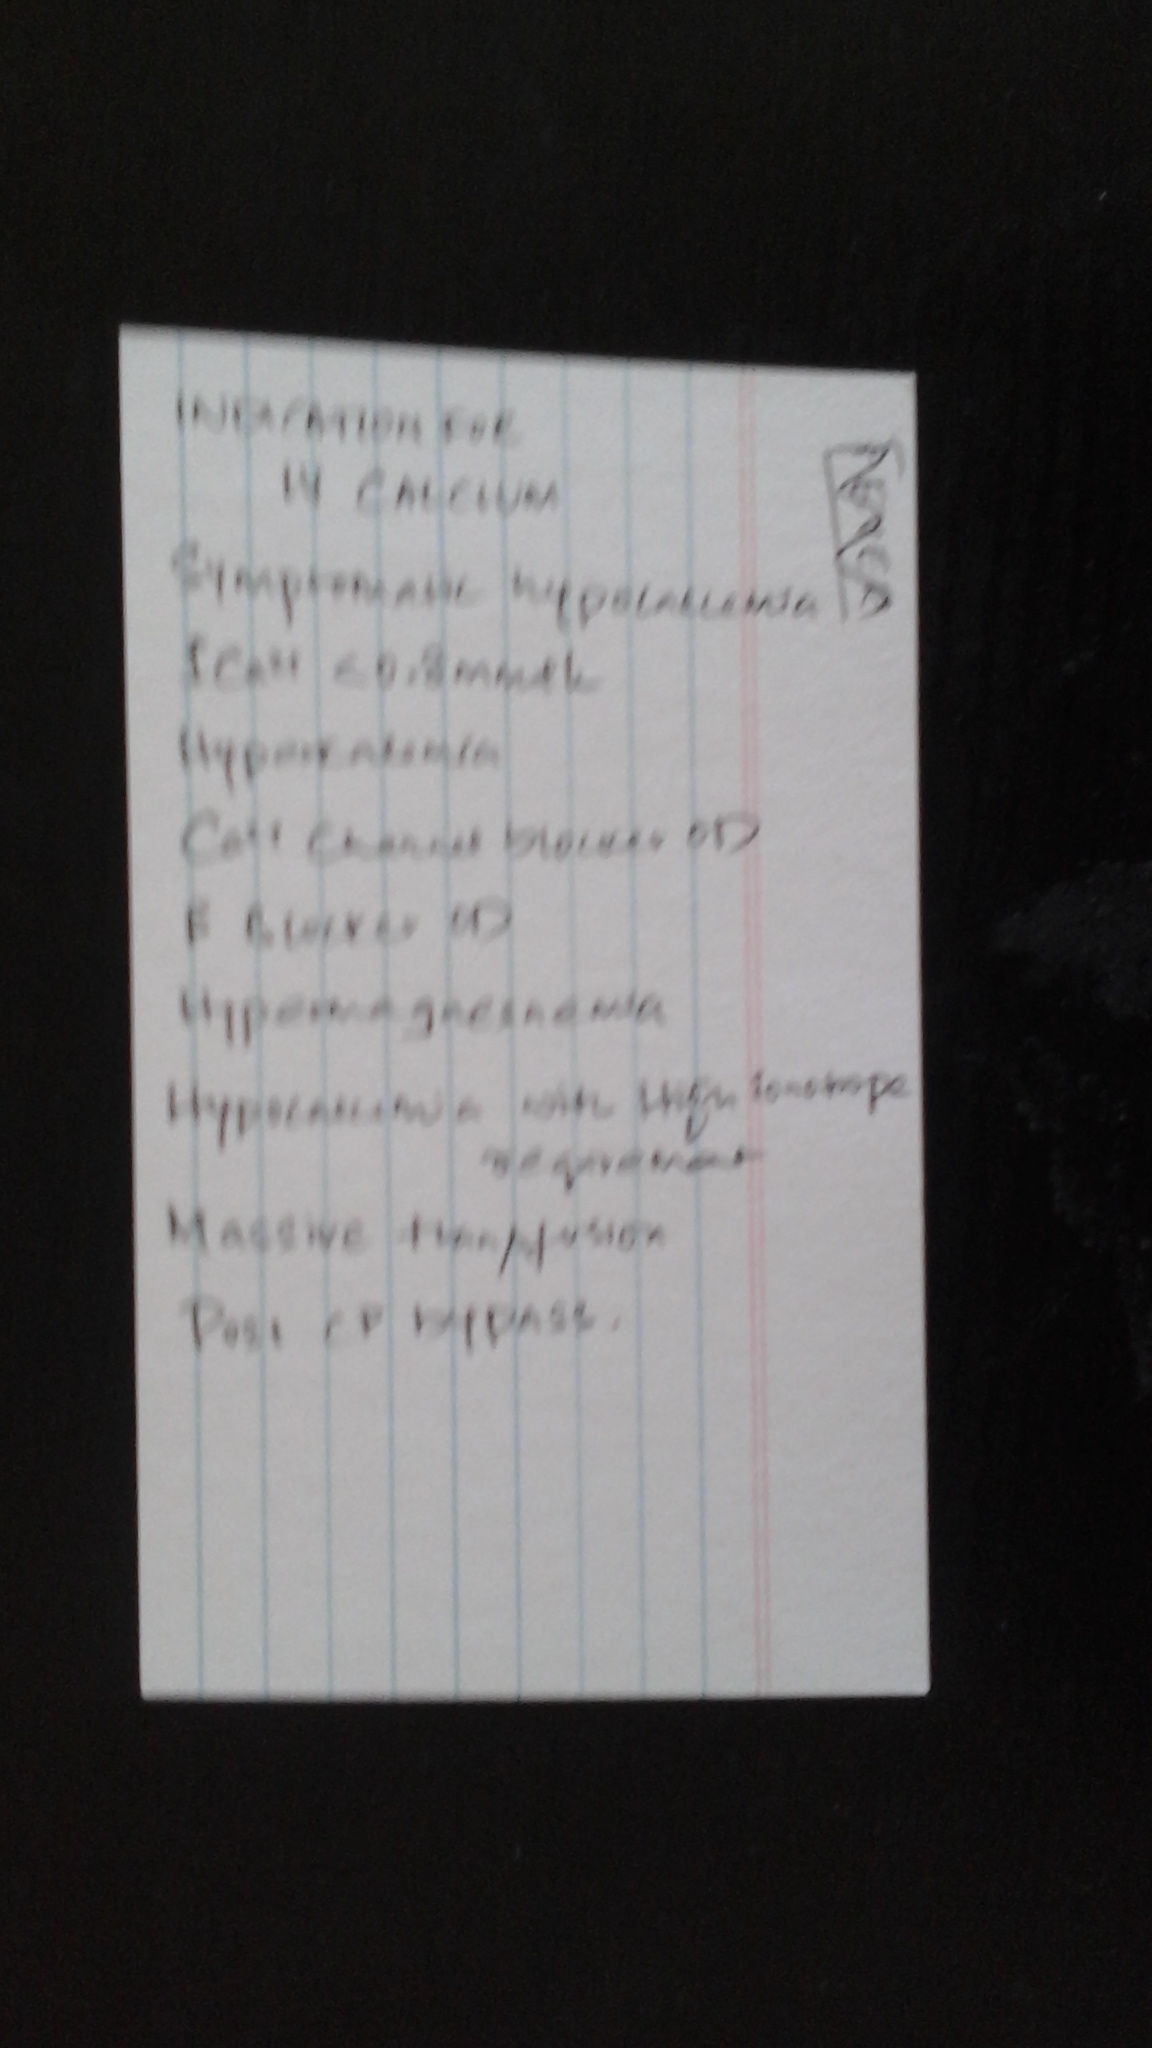 INDICATION FOR
IV CALCIUM
Symptomatic hypocalcemia
Ca++ <0.8mmol/L
Hyperkalemia
Ca++ Channel blocker OD
B Blocker OD
Hypermagnesnemia
Hypocalcemia with High Ionotrope
requirement
Massive transfusion
Post CP bypass.